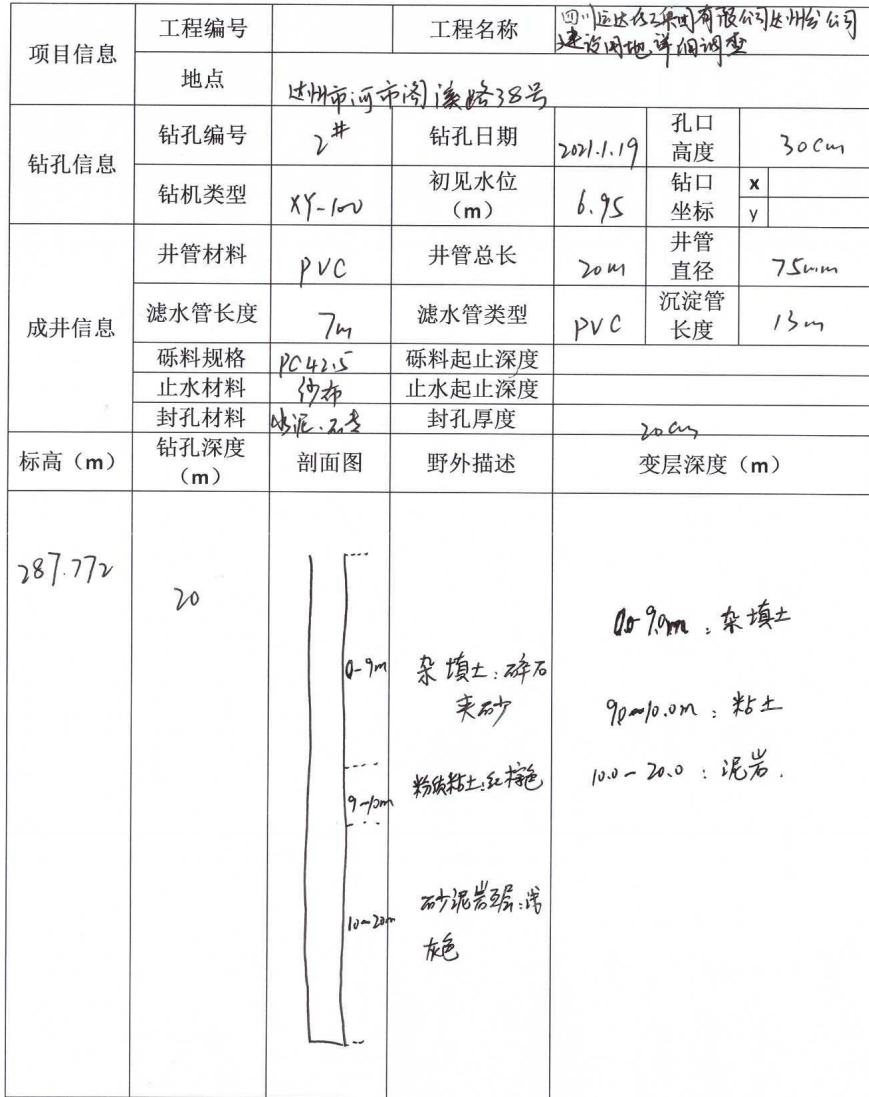 项目信息
工程编号
工程名称
四川运达化工集团有限公司达州分公司
建设用地详细调查
地点
达州市河市阁溪路38号
钻孔信息
钻孔编号
2#
钻孔日期
2021.1.19
孔口
高度
30cm
钻机类型
XY-100
初见水位
（m）
6.95
钻口
坐标
x
y
成井信息
井管材料
PVC
井管总长
20m
井管
直径
75mm
滤水管长度
7m
滤水管类型
PVC
沉淀管
长度
13m
砾料规格
PC42.5
砾料起止深度
止水材料
纱布
止水起止深度
封孔材料
水泥、
封孔厚度
20cm
标高（m）
钻孔深度
（m）
剖面图
野外描述
变层深度（m）
287.772
20
0-9m
9-10m
10-20m
杂填土:碎石
夹砂
粉质粘土:红棕色
砂泥岩互层:浅
灰色
0.0-9.0m：杂填土
9.0-10.0m：粘土
10.0-20.0：泥岩.